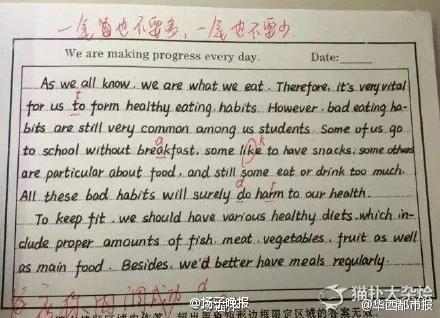 一笔也不要多,一笔也不要少
We are making progress every day. Date:
As we all know, we are what we eat. Therefore, it's very vital
t
for us to form healthy eating habits. However, bad eating ha-
bits are still very common among us students. Some of us go
a k
to school without breakfast, some like to have snacks, some others
are particular about food, and still some eat or drink too much.
d r
All these bad habits will surely do harm to our health.
To keep fit, we should have various healthy diets, which in-
clude proper amounts of fish, meat, vegetables, fruit as well
as main food. Besides, we'd better have meals regularly.
d
@扬子晚报
猫扑大杂烩
@华西都市报